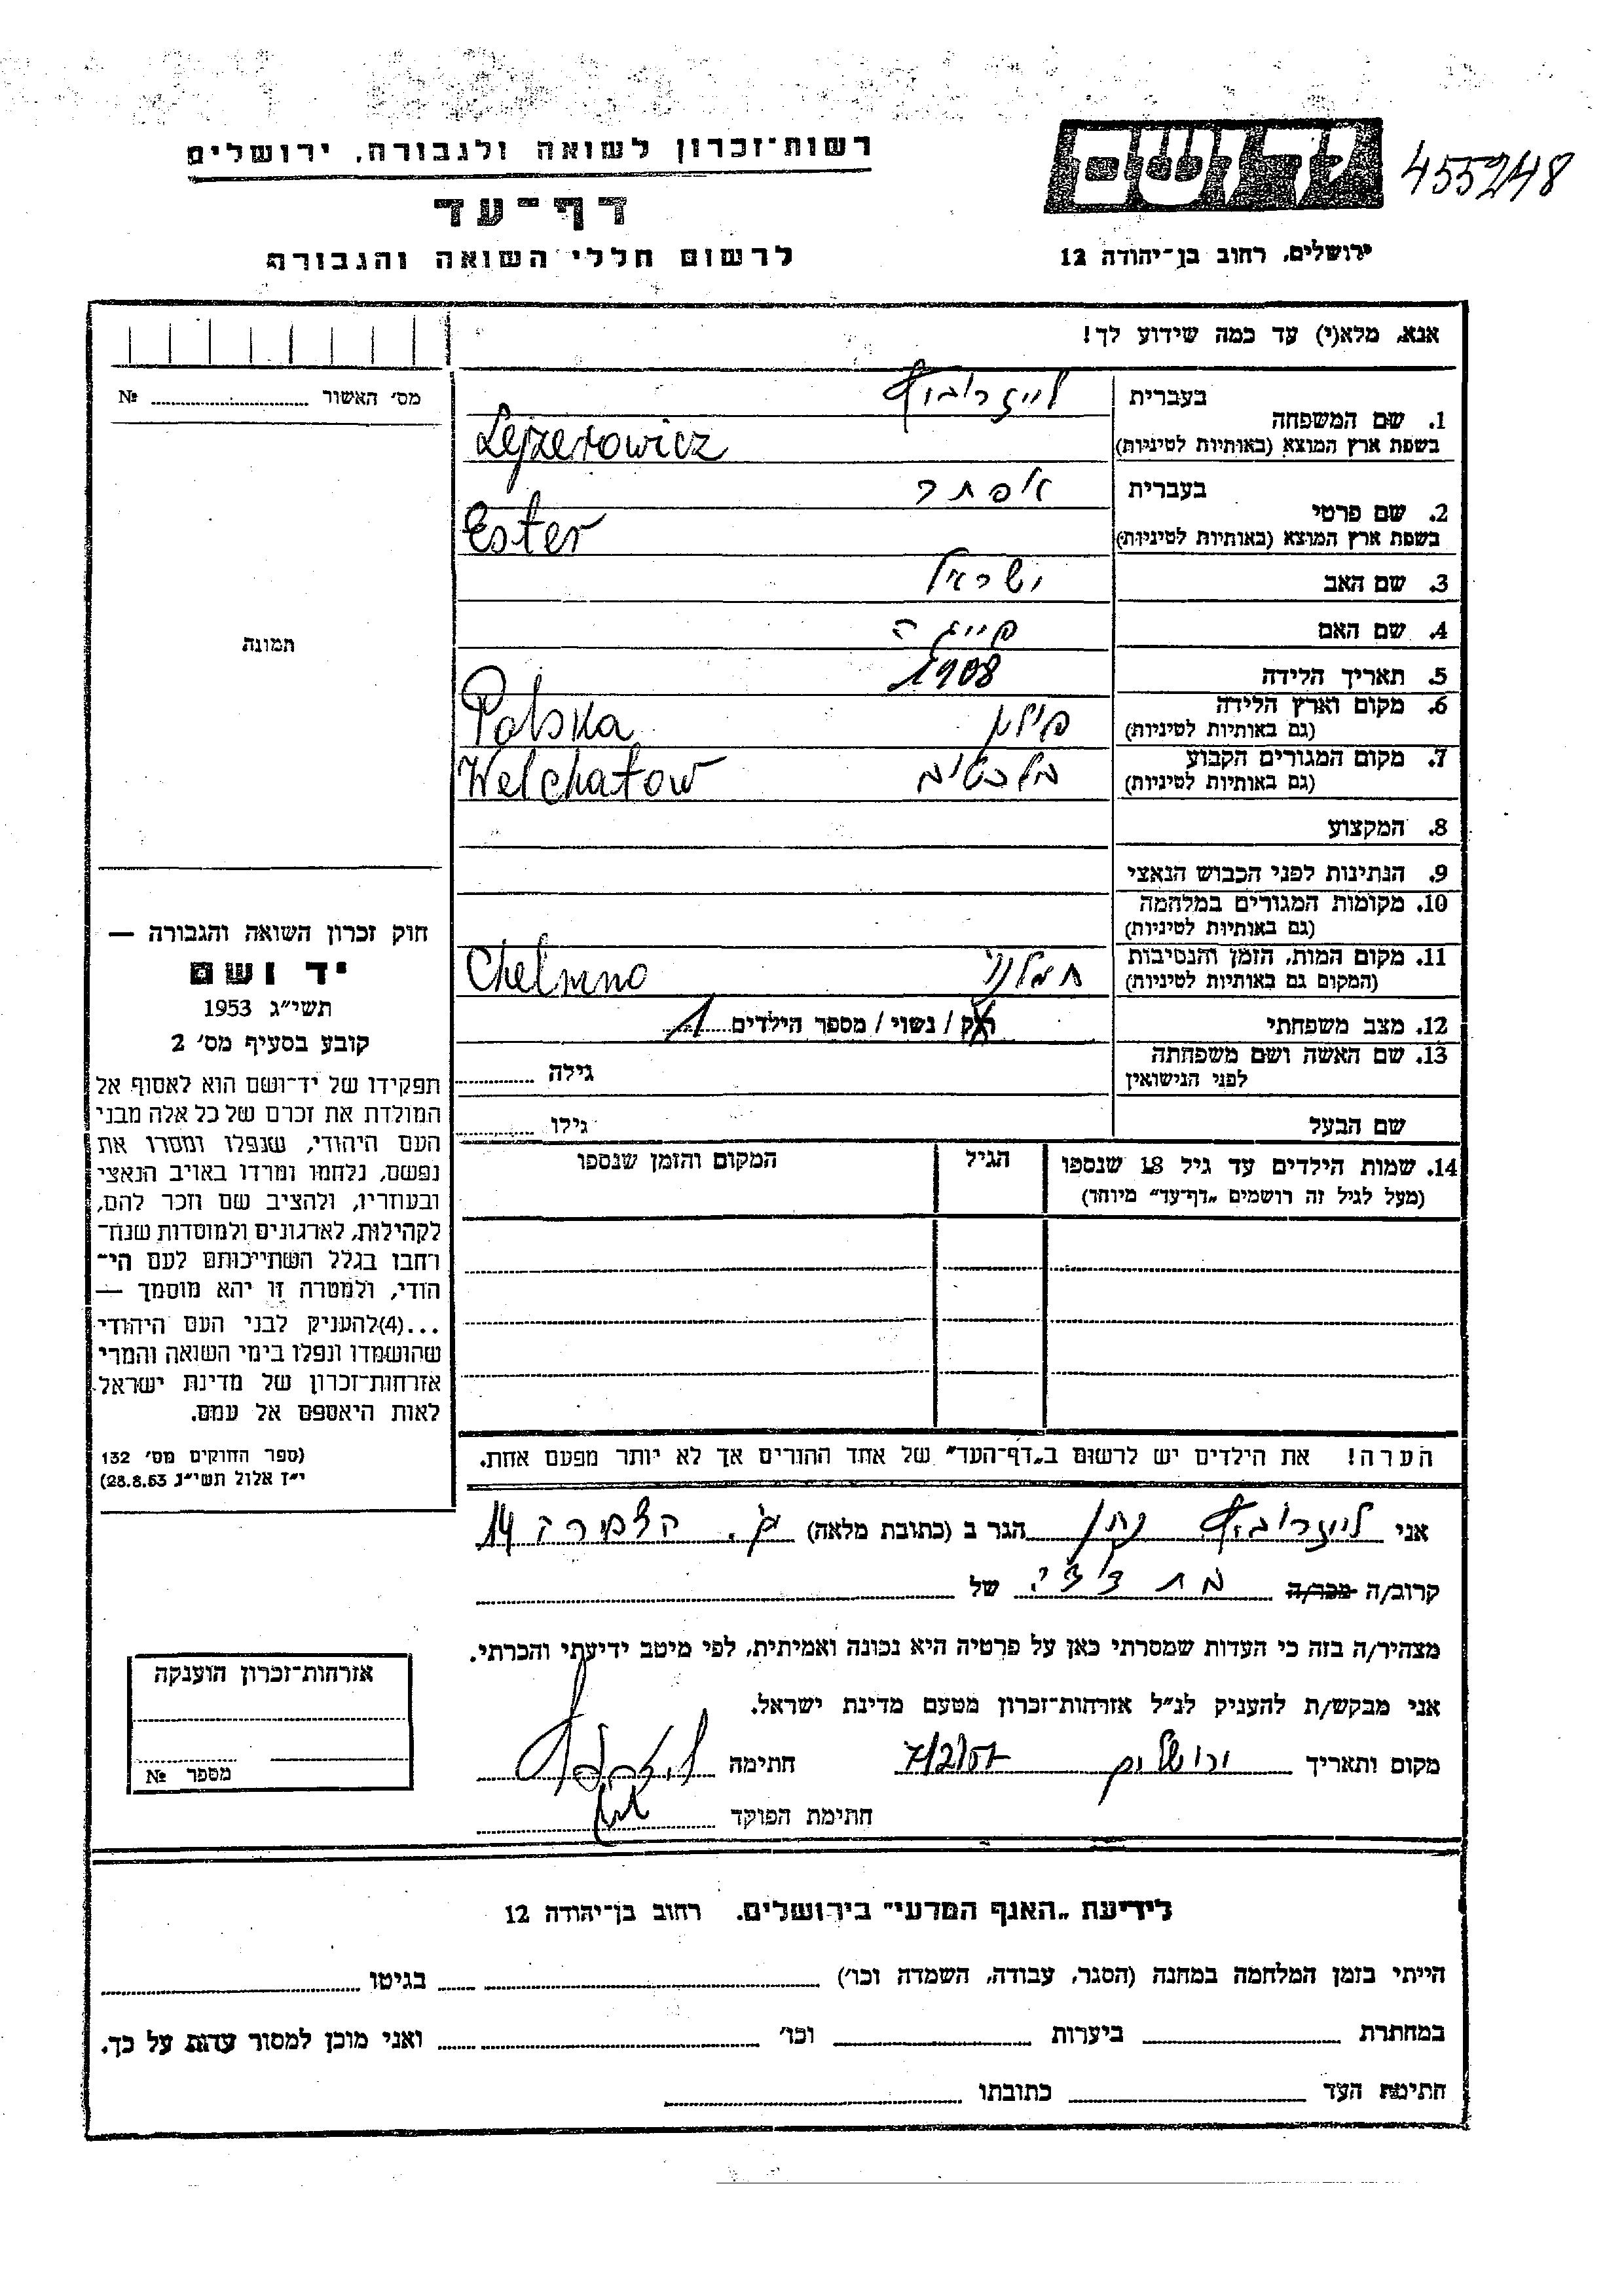 רשות־זכרון לשואה ולגבורה, ירושלים
דף־עד
לרשום חללי השואה והגבורה
יד ושם
455248
ירושלים, רחוב בן־יהודה 12
אנא, מלא(י) עד כמה שידוע לך!
מס' האשור № 
תמונה
בעברית לייזרוביץ
1. שם המשפחה
בשפת ארץ המוצא (באותיות לטיניות) Lejzerowicz
בעברית אסתר
2. שם פרטי
בשפת ארץ המוצא (באותיות לטיניות) Ester
3. שם האב ישראל
4. שם האם פייגה
5. תאריך הלידה 1908
6. מקום וארץ הלידה פולין Polska
(גם באותיות לטיניות)
7. מקום המגורים הקבוע Welchatow
(גם באותיות לטיניות)
8. המקצוע
9. הנתינות לפני הכבוש הנאצי
10. מקומות המגורים במלחמה
(גם באותיות לטיניות)
11. מקום המות, הזמן והנסיבות Chelmno
(המקום גם באותיות לטיניות)
12. מצב משפחתי רוק / נשוי / מספר הילדים 1
13. שם האשה ושם משפחתה גילה
לפני הנישואין
שם הבעל גילו
14. שמות הילדים עד גיל 18 שנספו הגיל המקום והזמן שנספו
(מעל לגיל זה רושמים „דף־עד" מיוחד)
הערה! את הילדים יש לרשום ב„דף־העד" של אחד ההורים אך לא יותר מפעם אחת.
חוק זכרון השואה והגבורה —
יד ושם
תשי"ג 1953
קובע בסעיף מס' 2
תפקידו של יד־ושם הוא לאסוף אל
המולדת את זכרם של כל אלה מבני
העם היהודי, שנפלו ומסרו את
נפשם, נלחמו ומרדו באויב הנאצי
ובעוזריו, ולהציב שם וזכר להם,
לקהילות, לארגונים ולמוסדות שנח־
רחבו בגלל השתייכותם לעם הי־
הודי, ולמטרה זו יהא מוסמך —
...(4)להעניק לבני העם היהודי
שהושמדו ונפלו בימי השואה והמרי
אזרחות־זכרון של מדינת ישראל
לאות היאספם אל עמם.
(ספר החוקים מס' 132
י"ז אלול תשי"ג 28.8.53)
אני לייזרוביץ נתן הגר ב (כתובת מלאה) 14
קרוב/ה מכר/ה בת דודי של
מצהיר/ה בזה כי העדות שמסרתי כאן על פרטיה היא נכונה ואמיתית, לפי מיטב ידיעתי והכרתי.
אני מבקש/ת להעניק לנ"ל אזרחות־זכרון מטעם מדינת ישראל.
מקום ותאריך ירושלים חתימה
חתימת הפוקד
אזרחות־זכרון הוענקה
מספר №
לידיעת „האגף המדעי" בירושלים, רחוב בן־יהודה 12
הייתי בזמן המלחמה במחנה (הסגר, עבודה, השמדה וכו') בגיטו
במחתרת ביערות וכו' ואני מוכן למסור עדות על כך.
חתימת העד כתובתו